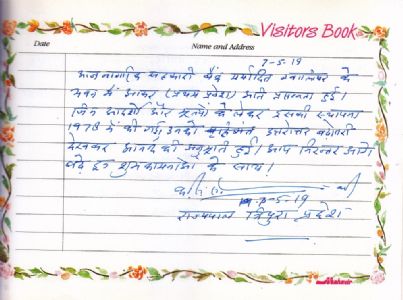 Visitors Book
Date
Name and Address
7-5-19
आज नागरिक सहकारी बैंक मर्यादित ग्वालियर के
भवन में आकर (प्रथम प्रवेश) अति प्रसन्नता हुई।
जिन आदर्शों और मूल्यों को लेकर इसकी स्थापना
1978 में की गई, उनको उत्तरोत्तर बढ़ोतरी
देखकर आनंद की अनुभूति हुई। आप निरन्तर आगे
बढ़े इन शुभकामनाओं के साथ।
7-5-19
राज्यपाल त्रिपुरा प्रदेश